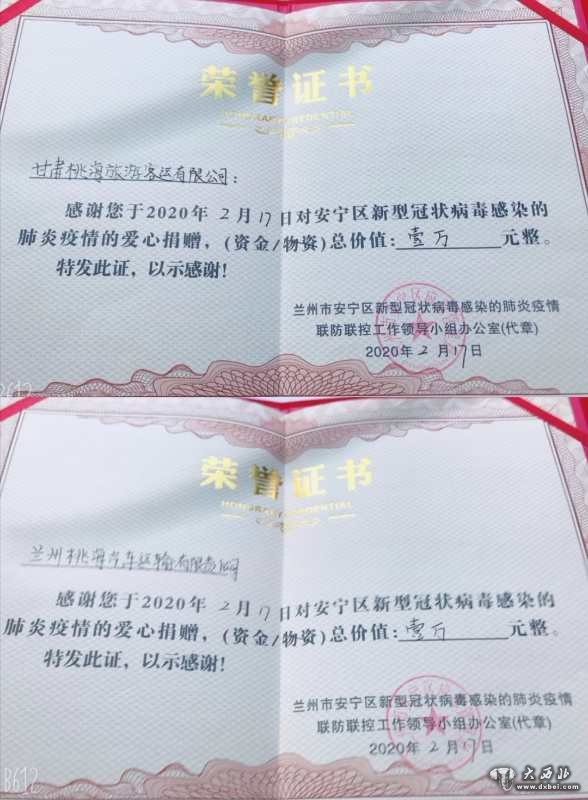 荣誉证书
HONORARY CREDENTIAL
甘肃桃海旅游客运有限公司：
感谢您于2020年2月17日对安宁区新型冠状病毒感染的
肺炎疫情的爱心捐赠，(资金/物资)总价值：壹万元整。
特发此证，以示感谢！
兰州市安宁区新型冠状病毒感染的肺炎疫情
联防联控工作领导小组办公室(代章)
2020年2月17日
B612
荣誉证书
HONORARY CREDENTIAL
兰州桃海汽车运输有限责任公司
感谢您于2020年2月17日对安宁区新型冠状病毒感染的
肺炎疫情的爱心捐赠，(资金/物资)总价值：壹万元整。
特发此证，以示感谢！
兰州市安宁区新型冠状病毒感染的肺炎疫情
联防联控工作领导小组办公室(代章)
2020年2月17日
B612
大西北
www.dxbei.com